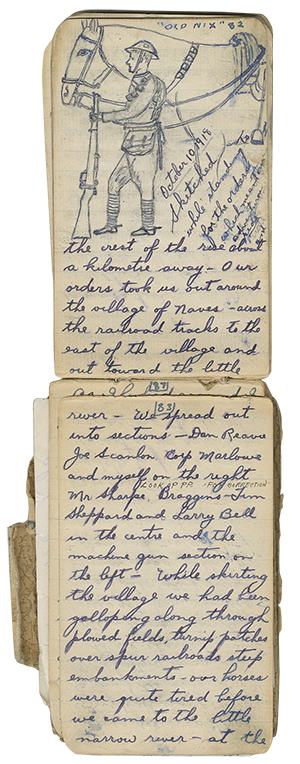 "OLD NIX" 82
October 10, 1918
Sketched
while standing to
for the orders
the crest of the rise about
a kilometre away - Our
orders took us out around
the village of Naves - across
the railroad tracks to the
east of the village and
out toward the little
83
river - We spread out
into sections - Dan Reave
Joe Scanlon, Marlowe
and myself on the right
LOOK UP PP.
Mr Sharpe. Braggins - Jim
Sheppard and Larry Bell
in the centre and the
machine gun section on
the left - While skirting
the village we had been
galloping along through
plowed fields, turnip patches
over spur railroads steep
embankments - our horses
were quite tired before
we came to the little
narrow river - at the